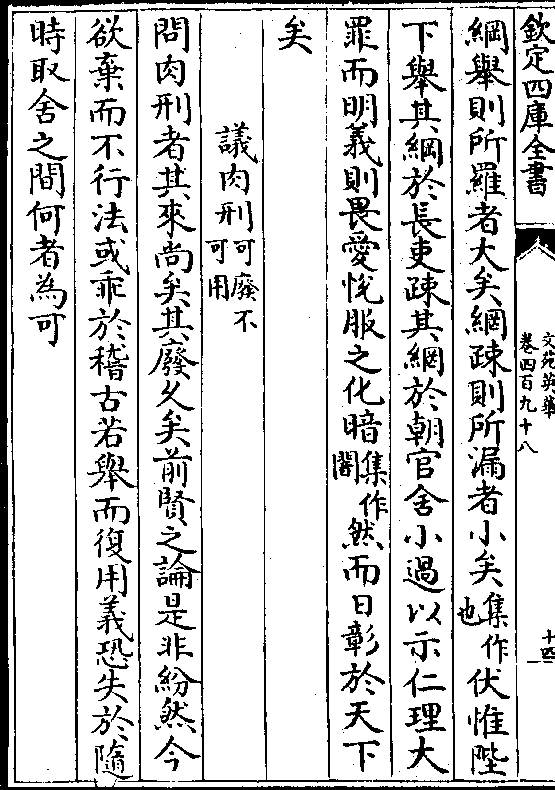 欽定四庫全書
文苑英華
卷四百九十八
十四
綱舉則所羅者大矣綱疎則所漏者小矣集作也伏惟陛
下舉其綱於長吏疎其綱於朝官舍小過以示仁理大
罪而明義則畏愛悅服之化暗集作闇然而日彰於天下
矣
議肉刑可廢不可用
問肉刑者其來尚矣其廢久矣前賢之論是非紛然今
欲棄而不行法或乖於稽古若舉而復用義恐失於隨
時取舍之間何者為可